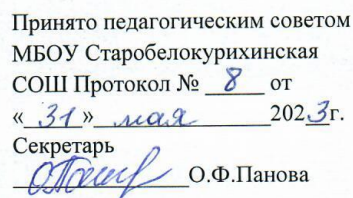 Принято педагогическим советом
МБОУ Старобелокурихинская
СОШ Протокол № 8 от
«31» мая 2023г.
Секретарь
О.Ф.Панова